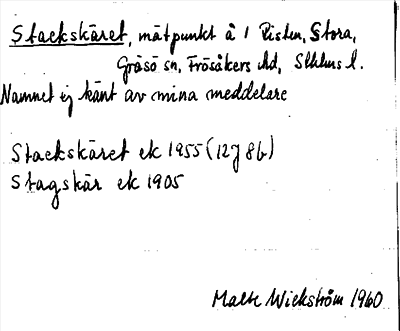 Stackskäret, mätpunkt å 1 Risten, Stora,
Gräsö sn, Frösåkers hd, Sthlms l.
Namnet ej känt av mina meddelare
Stackskäret ek 1955 (12J 8b)
Stagskär ek 1905
Malte Wickström 1960